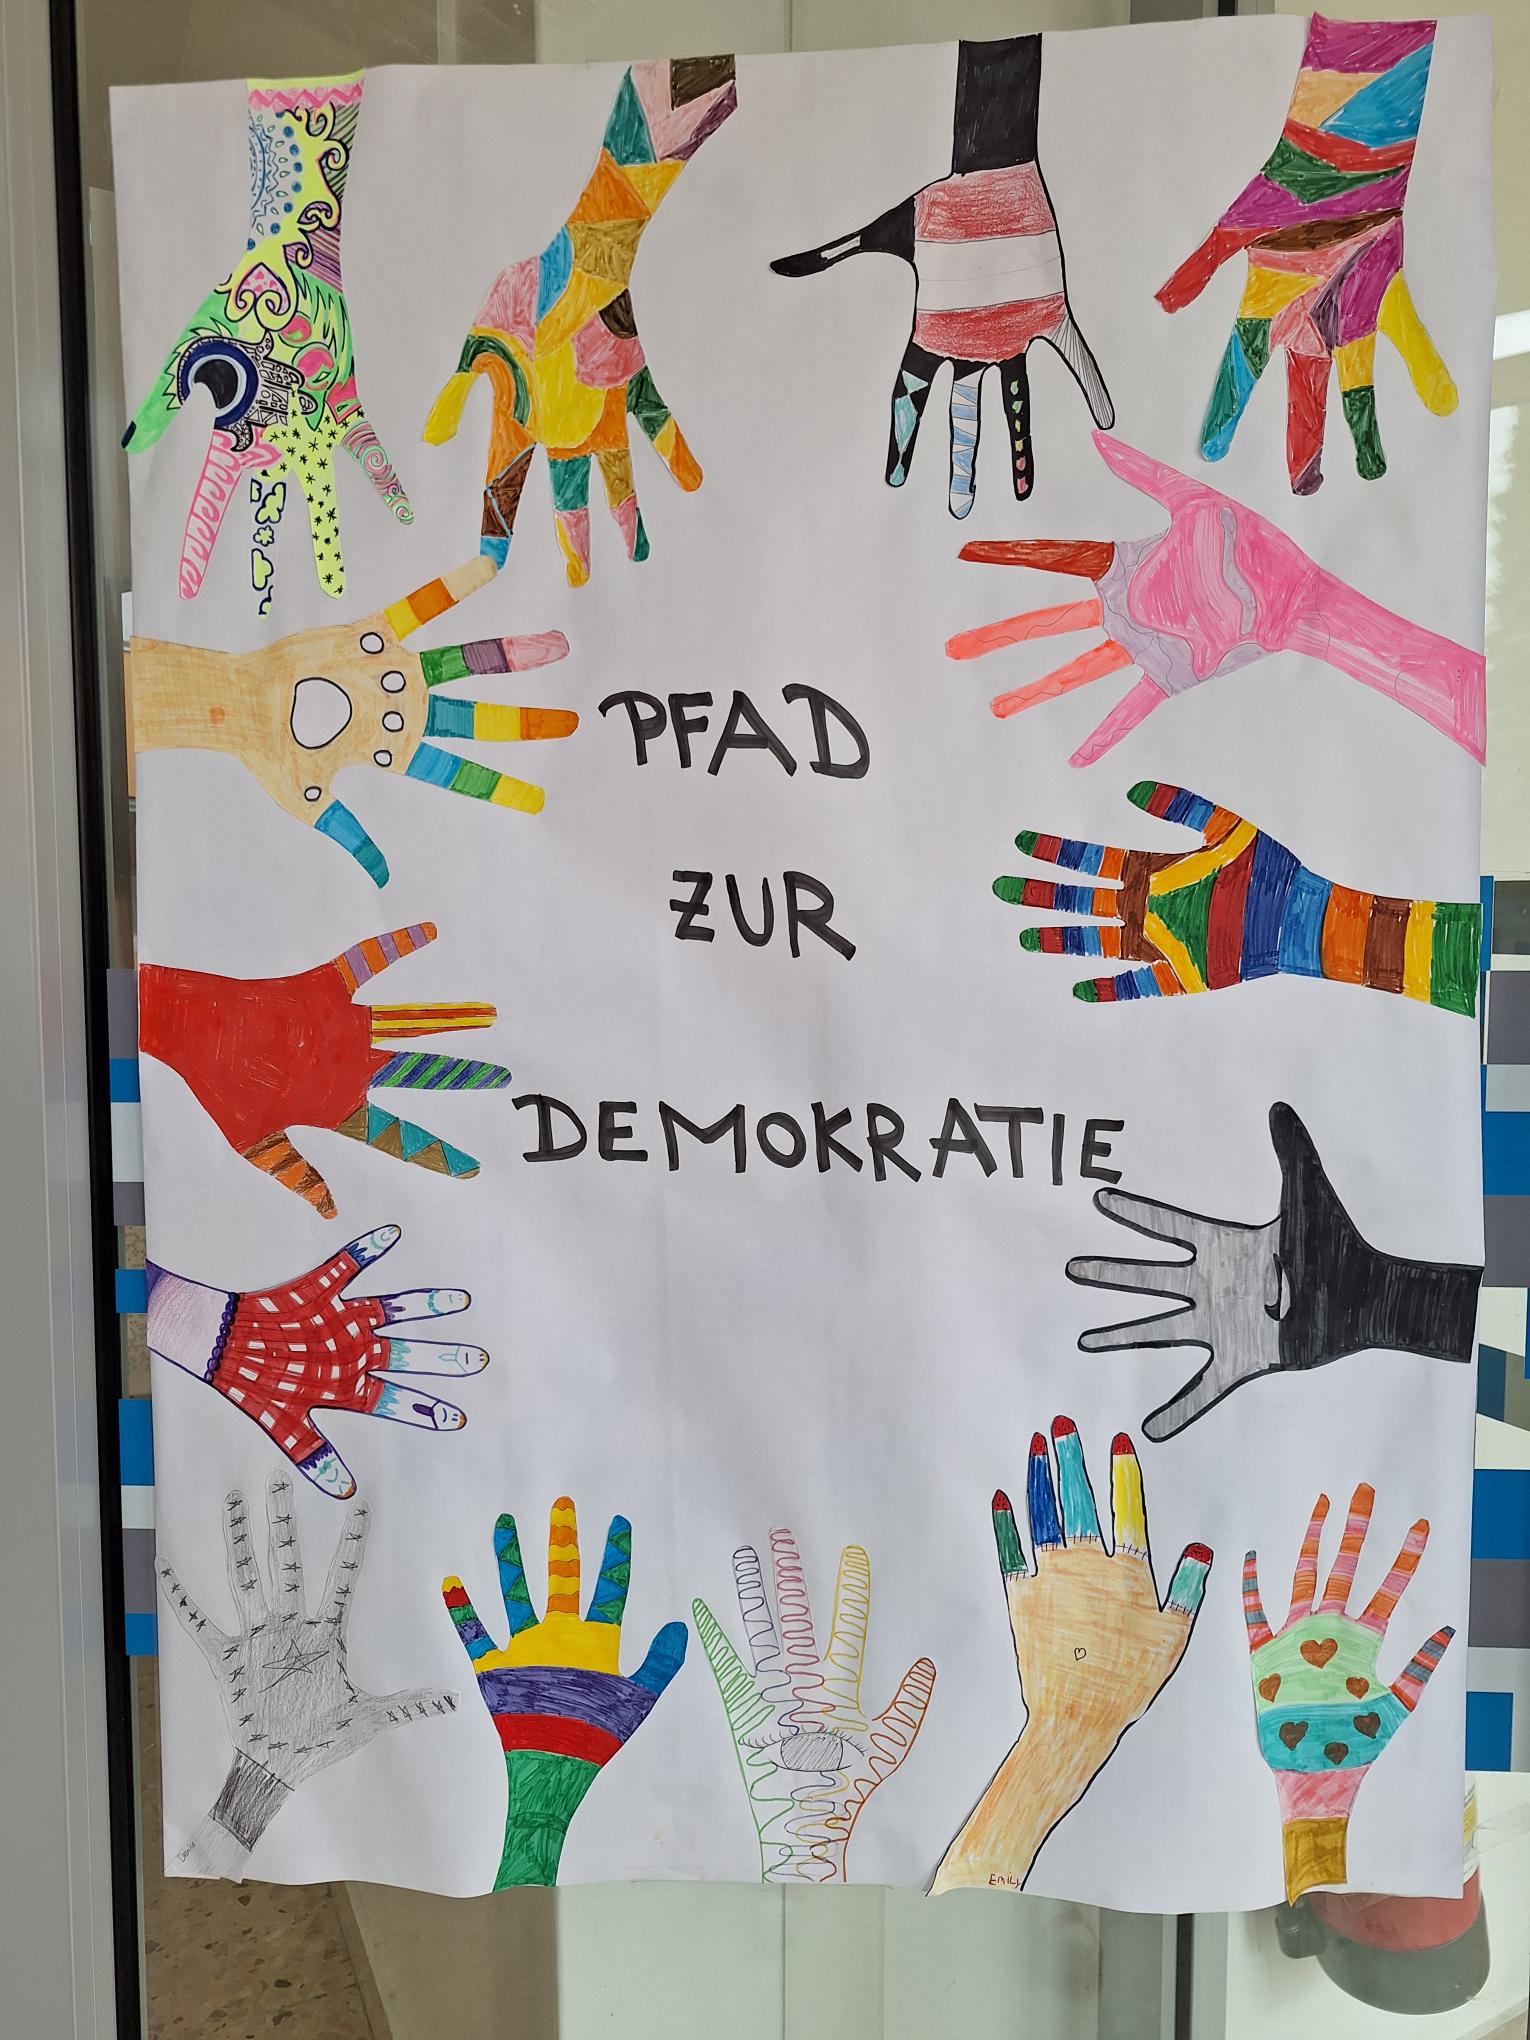 PFAD
ZUR
DEMOKRATIE
Emily